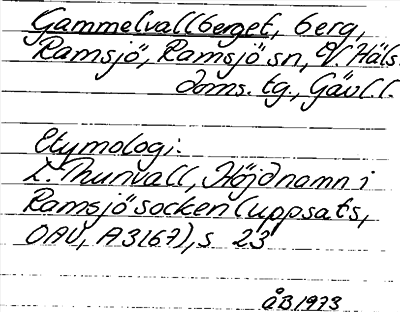 Gammelvallberget, berg,
Ramsjö, Ramsjö sn, V. Häls.
doms. tg., Gävl. l.
Etymologi:
L. Thunvall, Höjdnamn i
Ramsjö socken (uppsats,
OAU, A3167), s 23
ÅB 1973